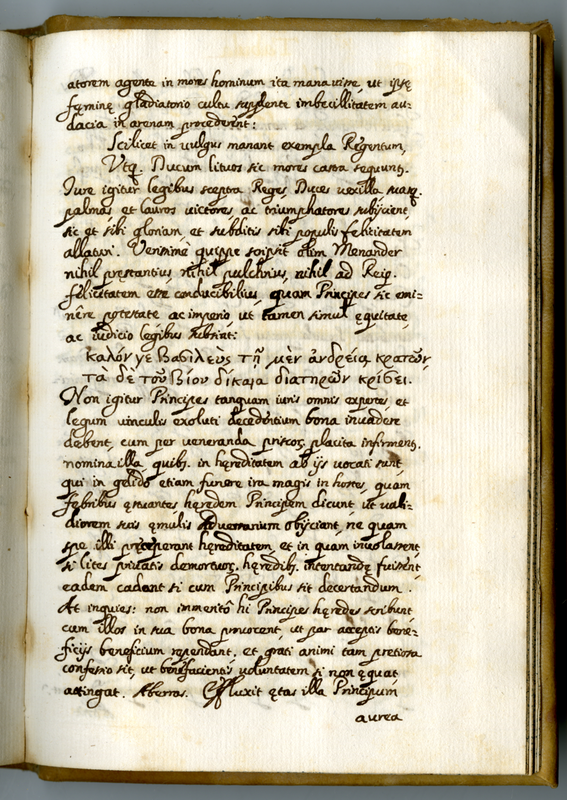 atorem agenta in mores hominum ita manavisse, ut ipsę
fęminę gladiatorio cultu supplente imbecillitatem au-
dacia in arenam procederent:
Scilicet in vulgus manant exempla Regentum,
Utq. Ducum lituos sic mores castra sequunt;.
Iure igitur legibus sceptra Reges, Duces vexilla suasq.
palmas et lauros victores, ac triumphatores subijcient,
sic et sibi gloriam et subditis sibi populis felicitatem
allaturi. Verissimè quippe scripsit olim Menander
nihil pręstantius, nihil pulchrius, nihil ad Reip.
felicitatem esse conducibilius, quam Principes sic emi=
nêre potestate ac imperio, ut tamen simul ęquitate,
ac iudicio legibus subsint:
καλόν γε βασιλεὺς τῇ μὲν ἀνδρείᾳ κρατῶν,
τὰ δὲ τοῦ βίου δίκαια διατηρῶν κρίσει.
Non igitur Principes tanquam iuris omnis expertes, et
legum vinculis exoluti decedentium bona invadere
debent, cum per veneranda priscoȝ placita infirment;.
nomina illa, quib; in hęreditatem ab ijs vocati sunt,
qui in gelido etiam funere ira magis in hostes, quam
febribus ęstuantes hęredem Principem dicunt, ut vali-
diorem suis ęmulis Adversarium obijciant, ne quam
spe illi pręceperant hęreditatem, et in quam involassent
si lites privatis demortuoȝ. hęredib; intentandę fuissent,
eadem cadant si cum Principibus sit decertandum.
At inquies: non inmeritò hi Principes hęredes scribunt
cum illos in sua bona provocent, ut par acceptis bene=
ficijs beneficium rependant, et grati animi tam pretiosa
confessio sit, ut benefacientis voluntatem si non ęquat
attingat. Aberras. Effluxit ętas illa Principum
aurea